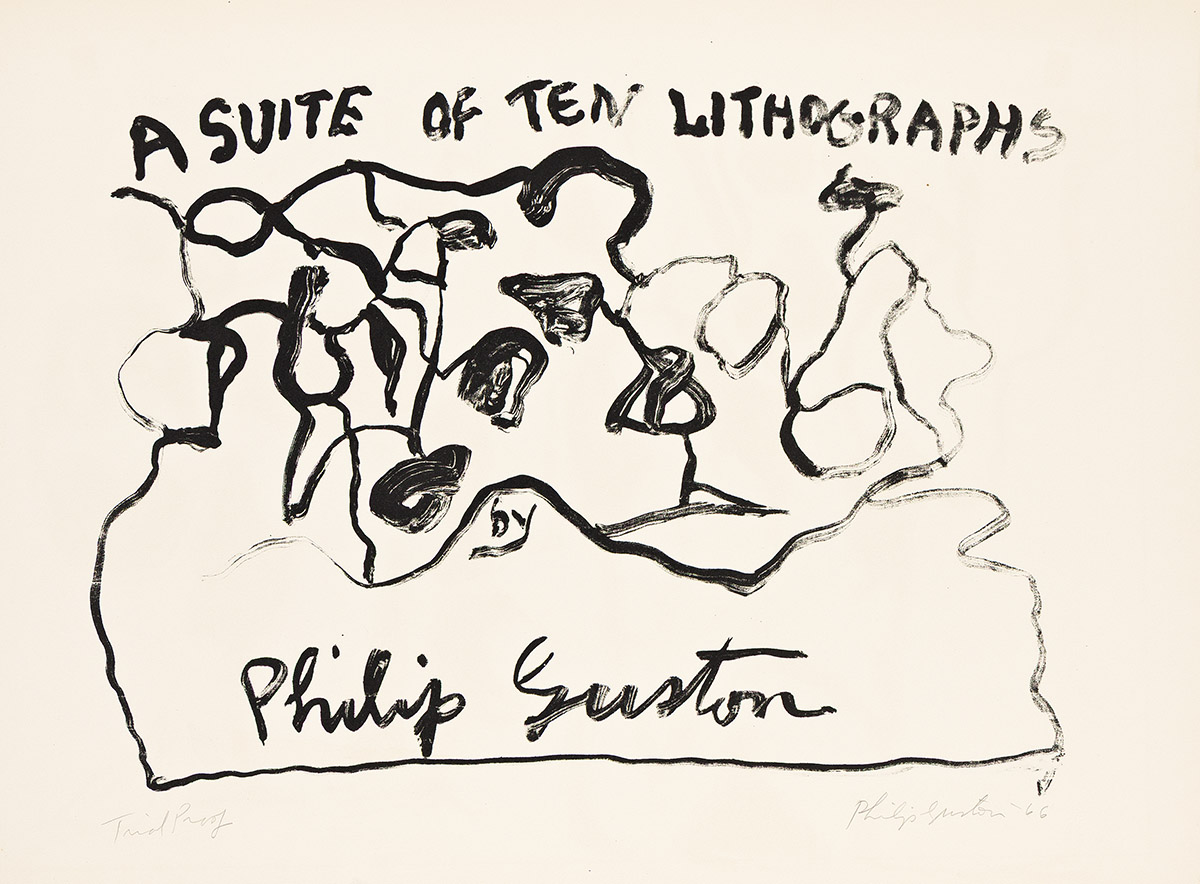 A SUITE OF TEN LITHOGRAPHS
by
Philip Guston
Trial Proof
Philip Guston '66